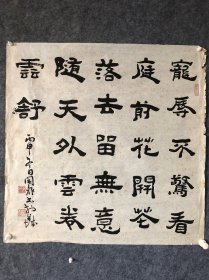 寵辱不驚看
庭前花開花
落去留無意
隨天外雲卷
雲舒
丙申冬日